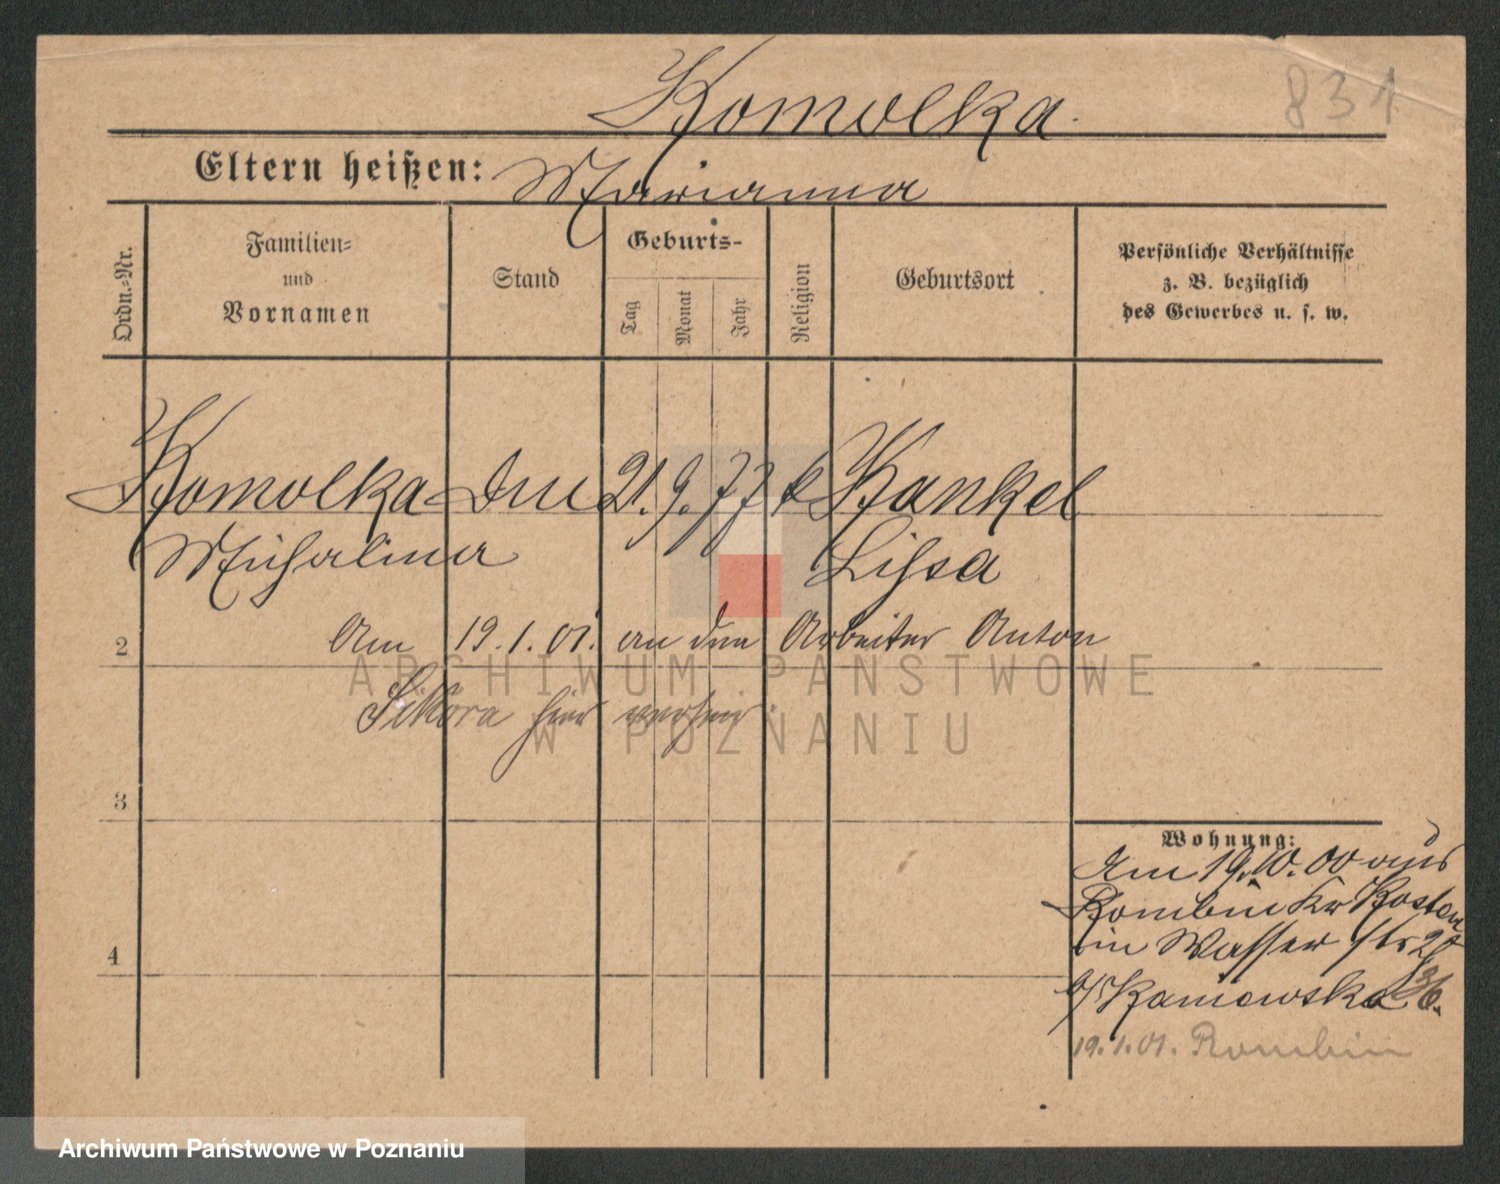 Komolka.
831
Eltern heißen: Marianna
Ordn.-Nr.
Familien-
und
Vornamen
Stand
Geburts-
Tag
Monat
Jahr
Religion
Geburtsort
Persönliche Verhältnisse
z. B. bezüglich
des Gewerbes u. s. w.
Komolka 21. 9. 77 k Kankel
Michalina Lissa
2
Am 19.1.01. an den Arbeiter Anton
Sikora hier verheir.
ARCHIWUM PAŃSTWOWE
W POZNANIU
3
4
Wohnung:
Am 19.10.00 aus
Rombin Kr Kosten
in Wasser str 29
b/ Kaniowska 36.
19.1.01. Rombin
Archiwum Państwowe w Poznaniu